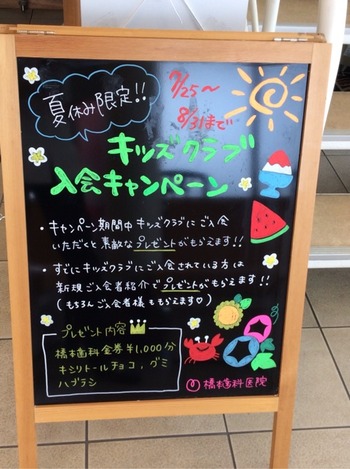 夏休み限定!!
7/25〜
8/31まで
キッズクラブ
入会キャンペーン
・キャンペーン期間中キッズクラブにご入会
いただくと素敵なプレゼントがもらえます!!
・すでにキッズクラブにご入会されている方は
新規ご入会者紹介でプレゼントがもらえます!!
(もちろんご入会者様ももらえます♡)
プレゼント内容
橋本歯科金券¥1,000分
キシリトールチョコ、グミ
ハブラシ
橋本歯科医院